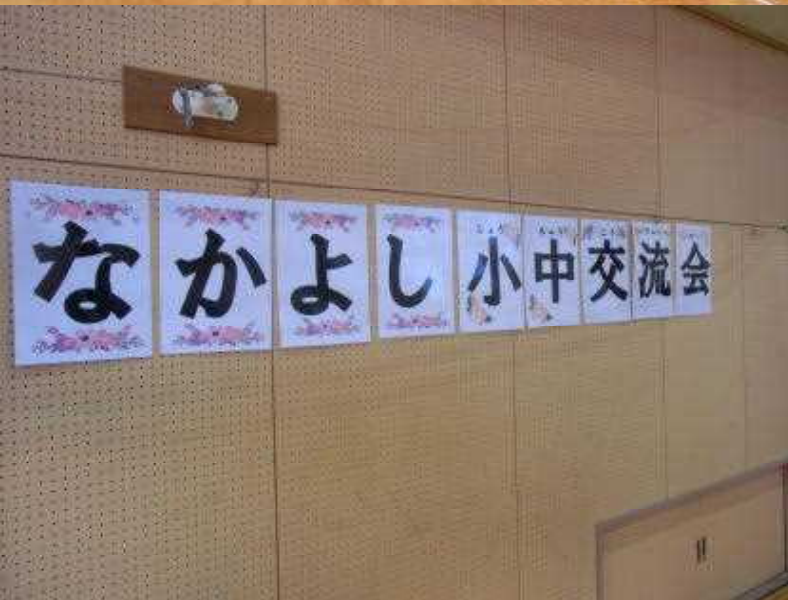 なかよし小中交流会